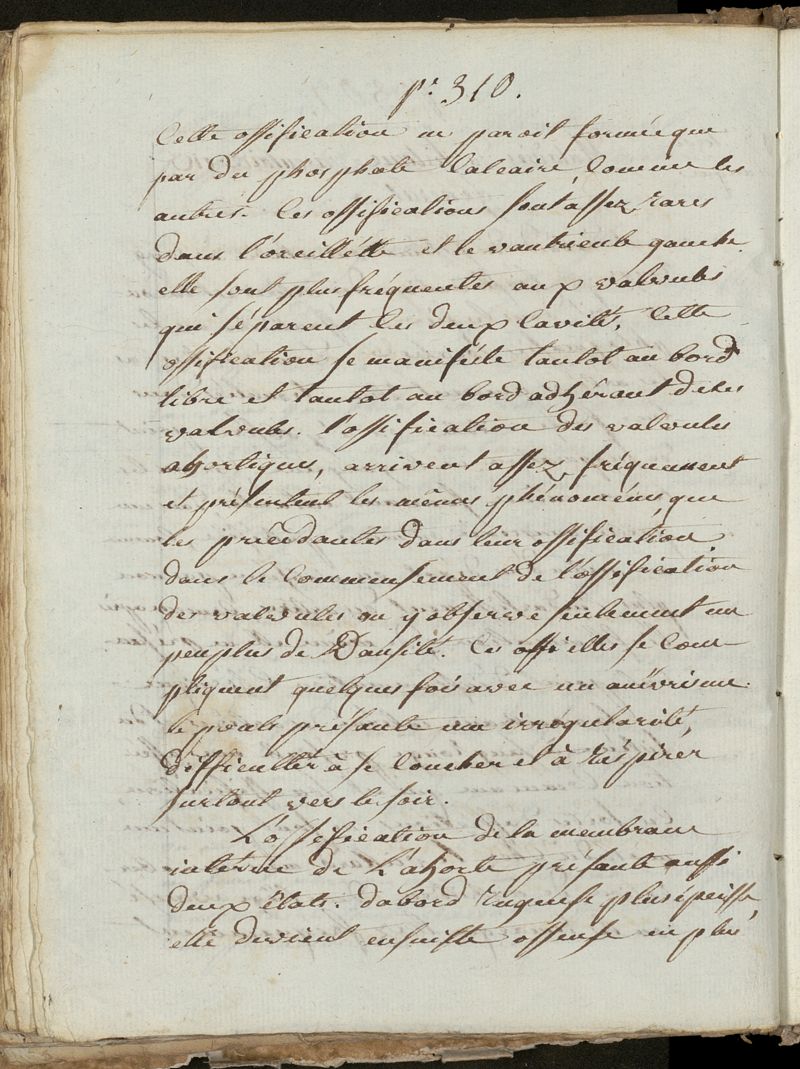 p.r 310.
Cette ossification ne paroit formée que
par du phosphate Calcaire, Comme les
autres. Ces ossifications sont assez rares
dans l'oreillétte et le vantricule gauche.
elle sont plus fréquentes aux valvules
qui séparent les deux Cavité, Cette
ossification se manifeste tantot au bord
libre et tantot au bord adhérant de ces
valvules. l'ossification des valvules
ahortiques, arrivent assez fréquament
et présentent les mêmes phénomènes, que
les précédantes dans leur ossification
dans le Commensement de l'ossification
des valvules on y observe seulement un
peu plus de Dansité. Ces ossielles se Com-
pliquent quelques fois avec un anévrisme.
le pouls présante une irrégularité,
difficultér à se Coucher et à réspirer
surtout vers le soir.
L'ossification de la membrane
interne de L'ahorte présante aussi
deux états. dabord rugueuse plus épaisse,
elle devient ensuitte osseuse en plus